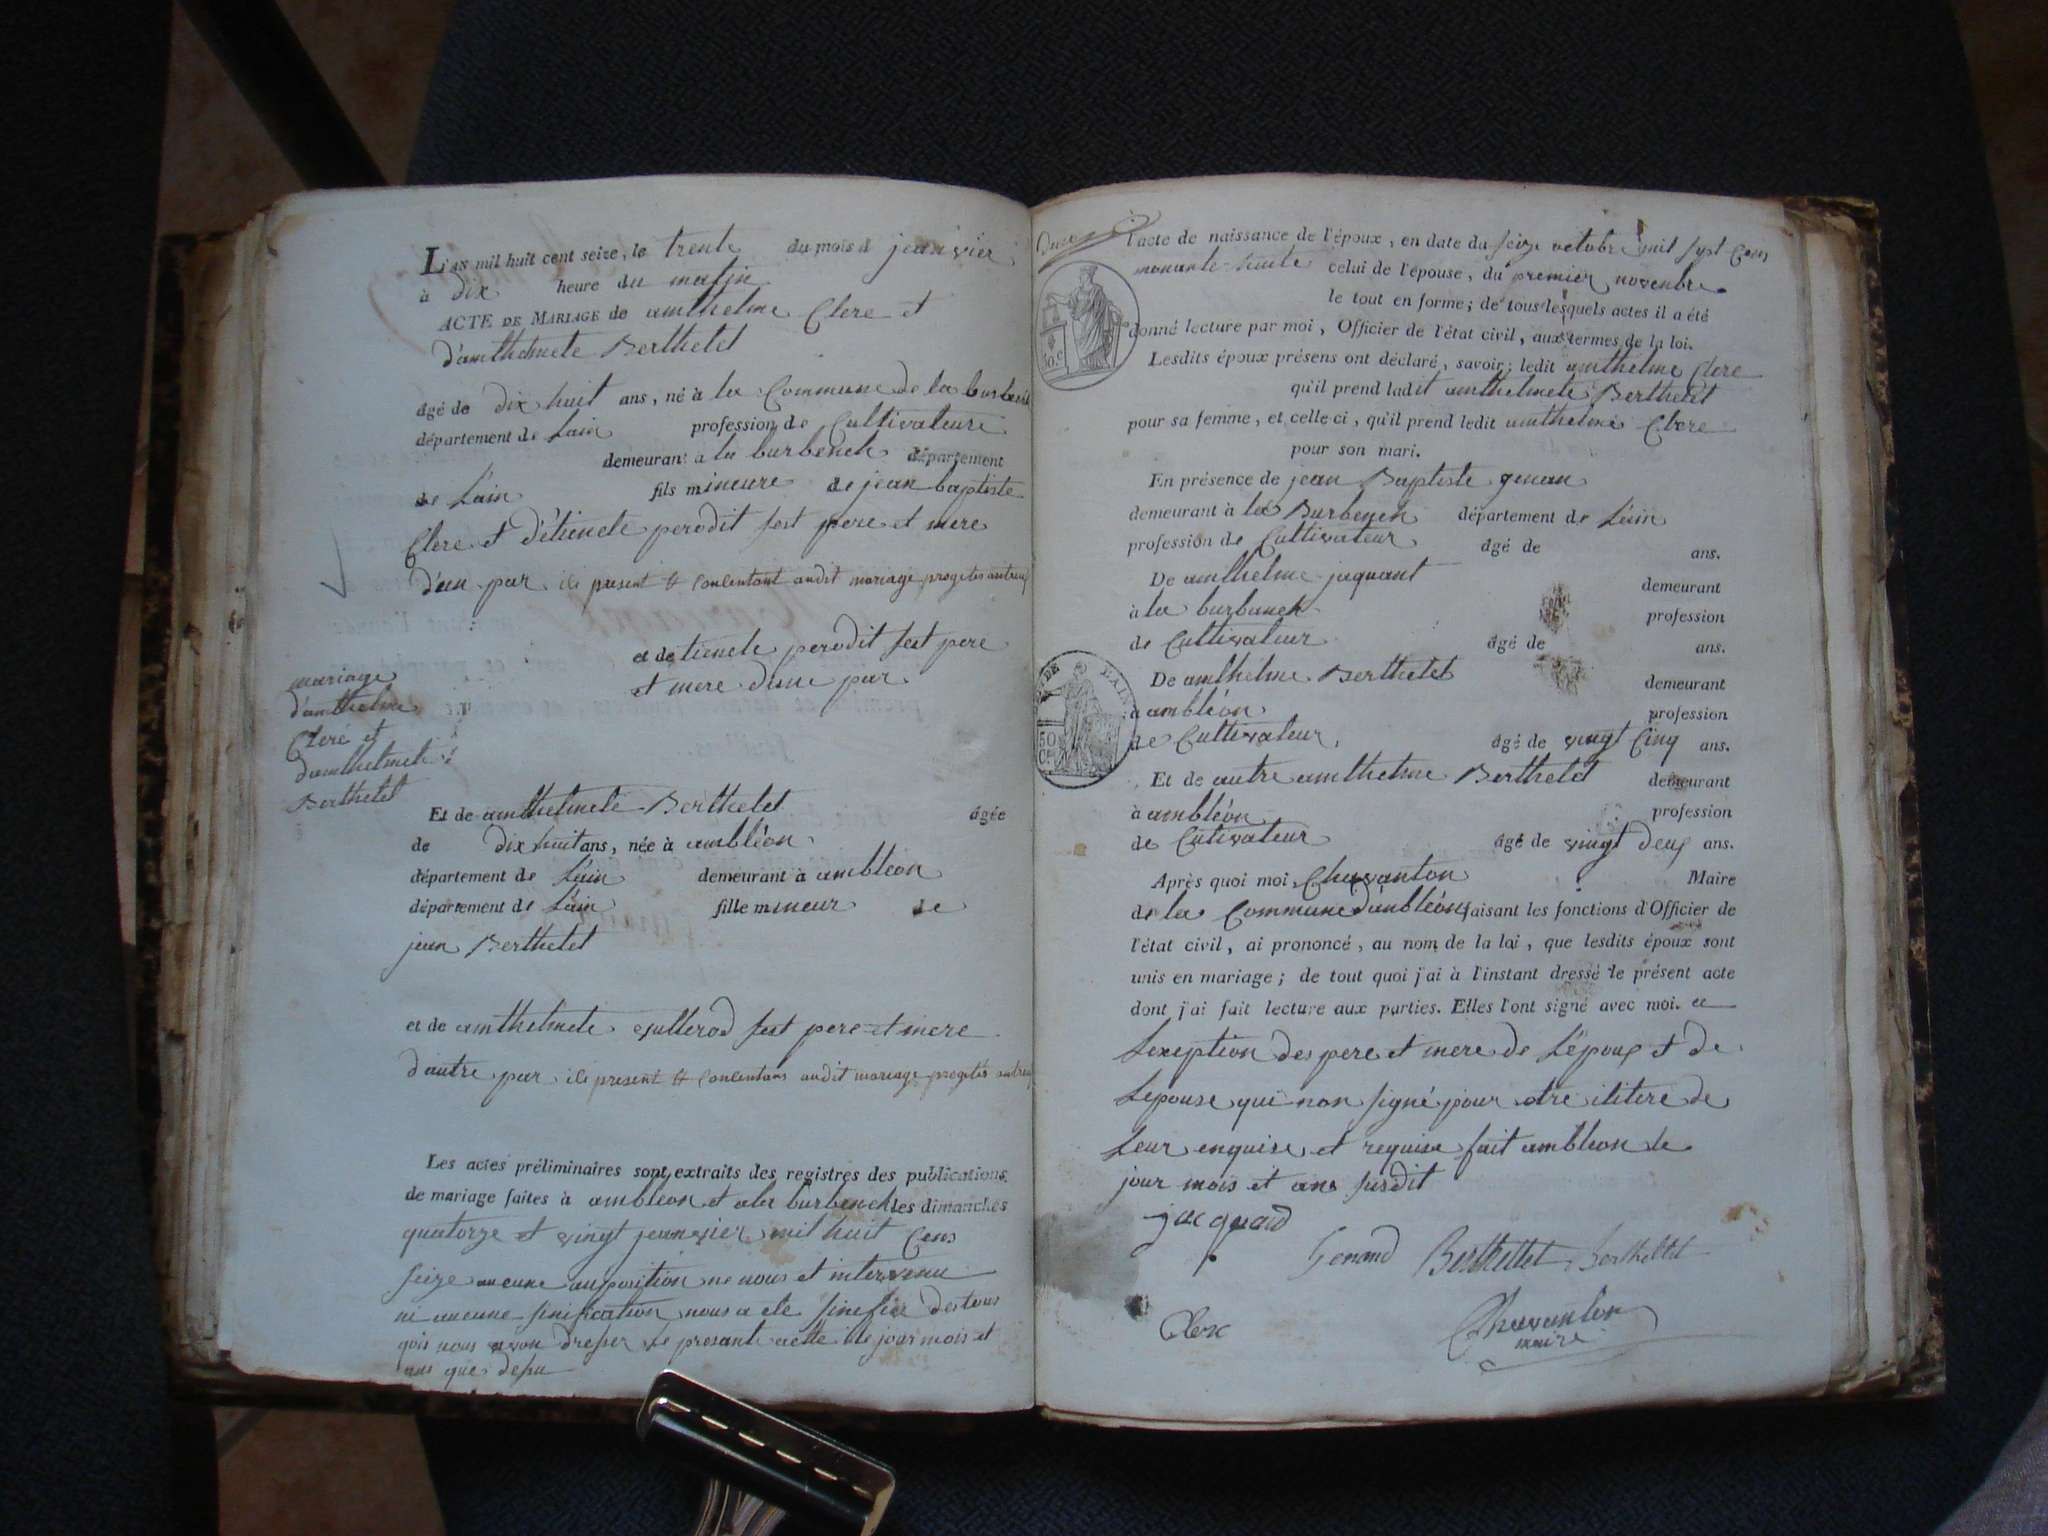 L'an mil huit cent seize, le trente du mois d jeanvier
à dix heure du matin
ACTE DE MARIAGE de amthelme Clere et
d'amthelmete Berthelet
âgé de dix huit ans, né à la Commune de la burbench
département de Lain profession de Cultivateure
demeurant à la burbench département
de Lain fils mineure de jean baptiste
Clere et d'étienete perodit sest pere et mere
d'un par ils present et Consentant audit mariage progetes
et de tienete perodit sest pere
et mere dune par
mariage
d'anthelme
Clere et
damthelmete
Berthelet
Et de amthelmete Berthelet âgée
de dix huit ans, née à ambléon
département de Lain demeurant à ambléon
département de Lain fille mineur de
jean Berthelet
et de amthelmete sest pere et mere
d'autre par ils present et Consentans audit mariage progetes
Les actes préliminaires sont extraits des registres des publications
de mariage faites à ambléon et ala burbench les dimanches
quatorze et vingt jeanvier mil huit Cens
seize aucune auposition ne nous et intervenu
ni aucune sinification nous a ete sinifier des tous
qois nous avon dresser le presant acte le jour mois et
ans que desu
l'acte de naissance de l'époux, en date du seize octobre mil sept Cens
celui de l'épouse, du premier novenbre
le tout en forme; de tous lesquels actes il a été
donné lecture par moi, Officier de l'état civil, aux termes de la loi.
Lesdits époux présens ont déclaré, savoir; ledit amthelme Clere
qu'il prend ladit amthelmete Berthelet
pour sa femme, et celle ci, qu'il prend ledit amthelme Clere
pour son mari.
En présence de jean Baptiste genan
demeurant à la Burbench département de Lain
profession de Cultivateur âgé de ans.
De amthelme jaquant demeurant
à la burbanch profession
de Cultivateur âgé de ans.
De amthelme Berthelet demeurant
à ambléon profession
de Cultivateur, âgé de vingt Cinq ans.
Et de autre amthelme Berthelet demeurant
à ambléon profession
de Cultivateur âgé de vingt deux ans.
Après quoi moi, Chavanton Maire
de la Commune d'anbléon faisant les fonctions d'Officier de
l'état civil, ai prononcé, au nom de la loi, que lesdits époux sont
unis en mariage; de tout quoi j'ai à l'instant dressé le présent acte
dont j'ai fait lecture aux parties. Elles l'ont signé avec moi. a
Lexeption des pere et mere de Lépoux et de
Lepouse qui non signé pour etre ilitere de
Leur enquise et requise fait ambléon le
jour mois et ans susdit
jacquard
Genand Berthellet Berthelet
Clerc
Chavanton
maire
50